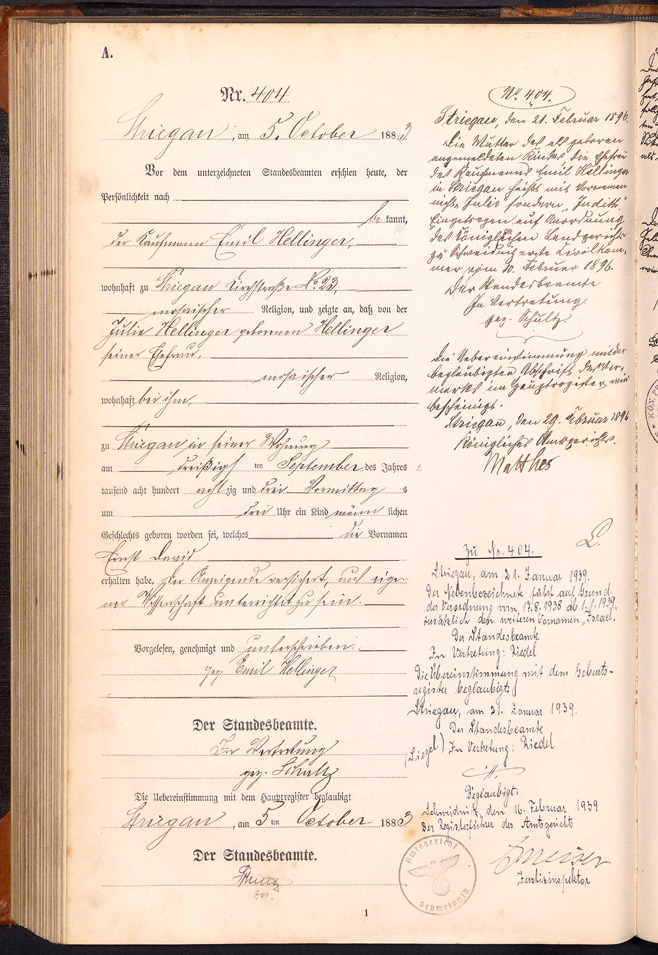 A.
Nr. 404
Striegau, am 5. October 1883
Vor dem unterzeichneten Standesbeamten erschien heute, der
Persönlichkeit nach
be kannt,
der Kaufmann Emil Hellinger,
wohnhaft zu Striegau Kirchstraße No 23,
mosaischer Religion, und zeigte an, daß von der
Julie Hellinger geborenen Hellinger
seiner Ehefrau,
mosaischer Religion,
wohnhaft bei ihm,
zu Striegau in seiner Wohnung
am dreißigsten September des Jahres
tausend acht hundert achtzig und drei Vormittag s
um drei Uhr ein Kind männlichen
Geschlechts geboren worden sei, welches die Vornamen
Ernst David
erhalten habe. Der Anzeigende versichert, aus eige-
ner Wissenschaft unterrichtet zu sein.
Vorgelesen, genehmigt und unterschrieben
gez. Emil Hellinger
Der Standesbeamte.
In Vertretung
gez. Schultz
Die Uebereinstimmung mit dem Hauptregister beglaubigt
Striegau, am 5 ten October 1883
Der Standesbeamte.
1
No. 404.
Striegau, den 21. Februar 1896
Die Mutter des als geboren
angemeldeten Kindes die Ehefrau
des Kaufmanns Emil Hellinger
in Striegau heißt mit Vornamen
nicht Julie sondern „Judith"
Eingetragen auf Anordnung
des Königlichen Landgerichts
zu Schweidnitz erste Civilkam-
mer vom 10. Februar 1896.
Der Standesbeamte
In Vertretung
gez. Schultz
Die Uebereinstimmung mit der
beglaubigten Abschrift des Ver-
merks im Hauptregister wird
bescheinigt.
Striegau, den 29. Februar 1896
Königliches Amtsgericht.
Matthes
Zu Nr. 404.
Striegau, am 21. Januar 1939.
Der Nebenbezeichnete führt auf Grund
der Verordnung vom 17.8.1938 ab 1.1.1939
zusätzlich den weiteren Vornamen „Israel".
Der Standesbeamte
In Vertretung: Riedel
Die Übereinstimmung mit dem Geburts-
register beglaubigt
Striegau, am 21. Januar 1939.
Der Standesbeamte
(Siegel) In Vertretung: Riedel
Beglaubigt.
Schweidnitz, den 16. Februar 1939
Der Registerführer des Amtsgerichts
Justizinspektor
Amtsgericht
Schweidnitz